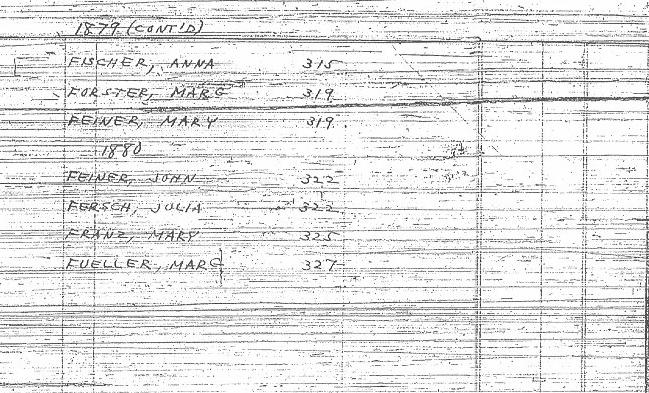 1879 (CONT'D)
FISCHER, ANNA 315
FORSTER, MARG 319
FEINER, MARY 319
1880
FEINER, JOHN 322
FERSCH, JULIA 322
FRANZ, MARY 325
FUELLER, MARG 327